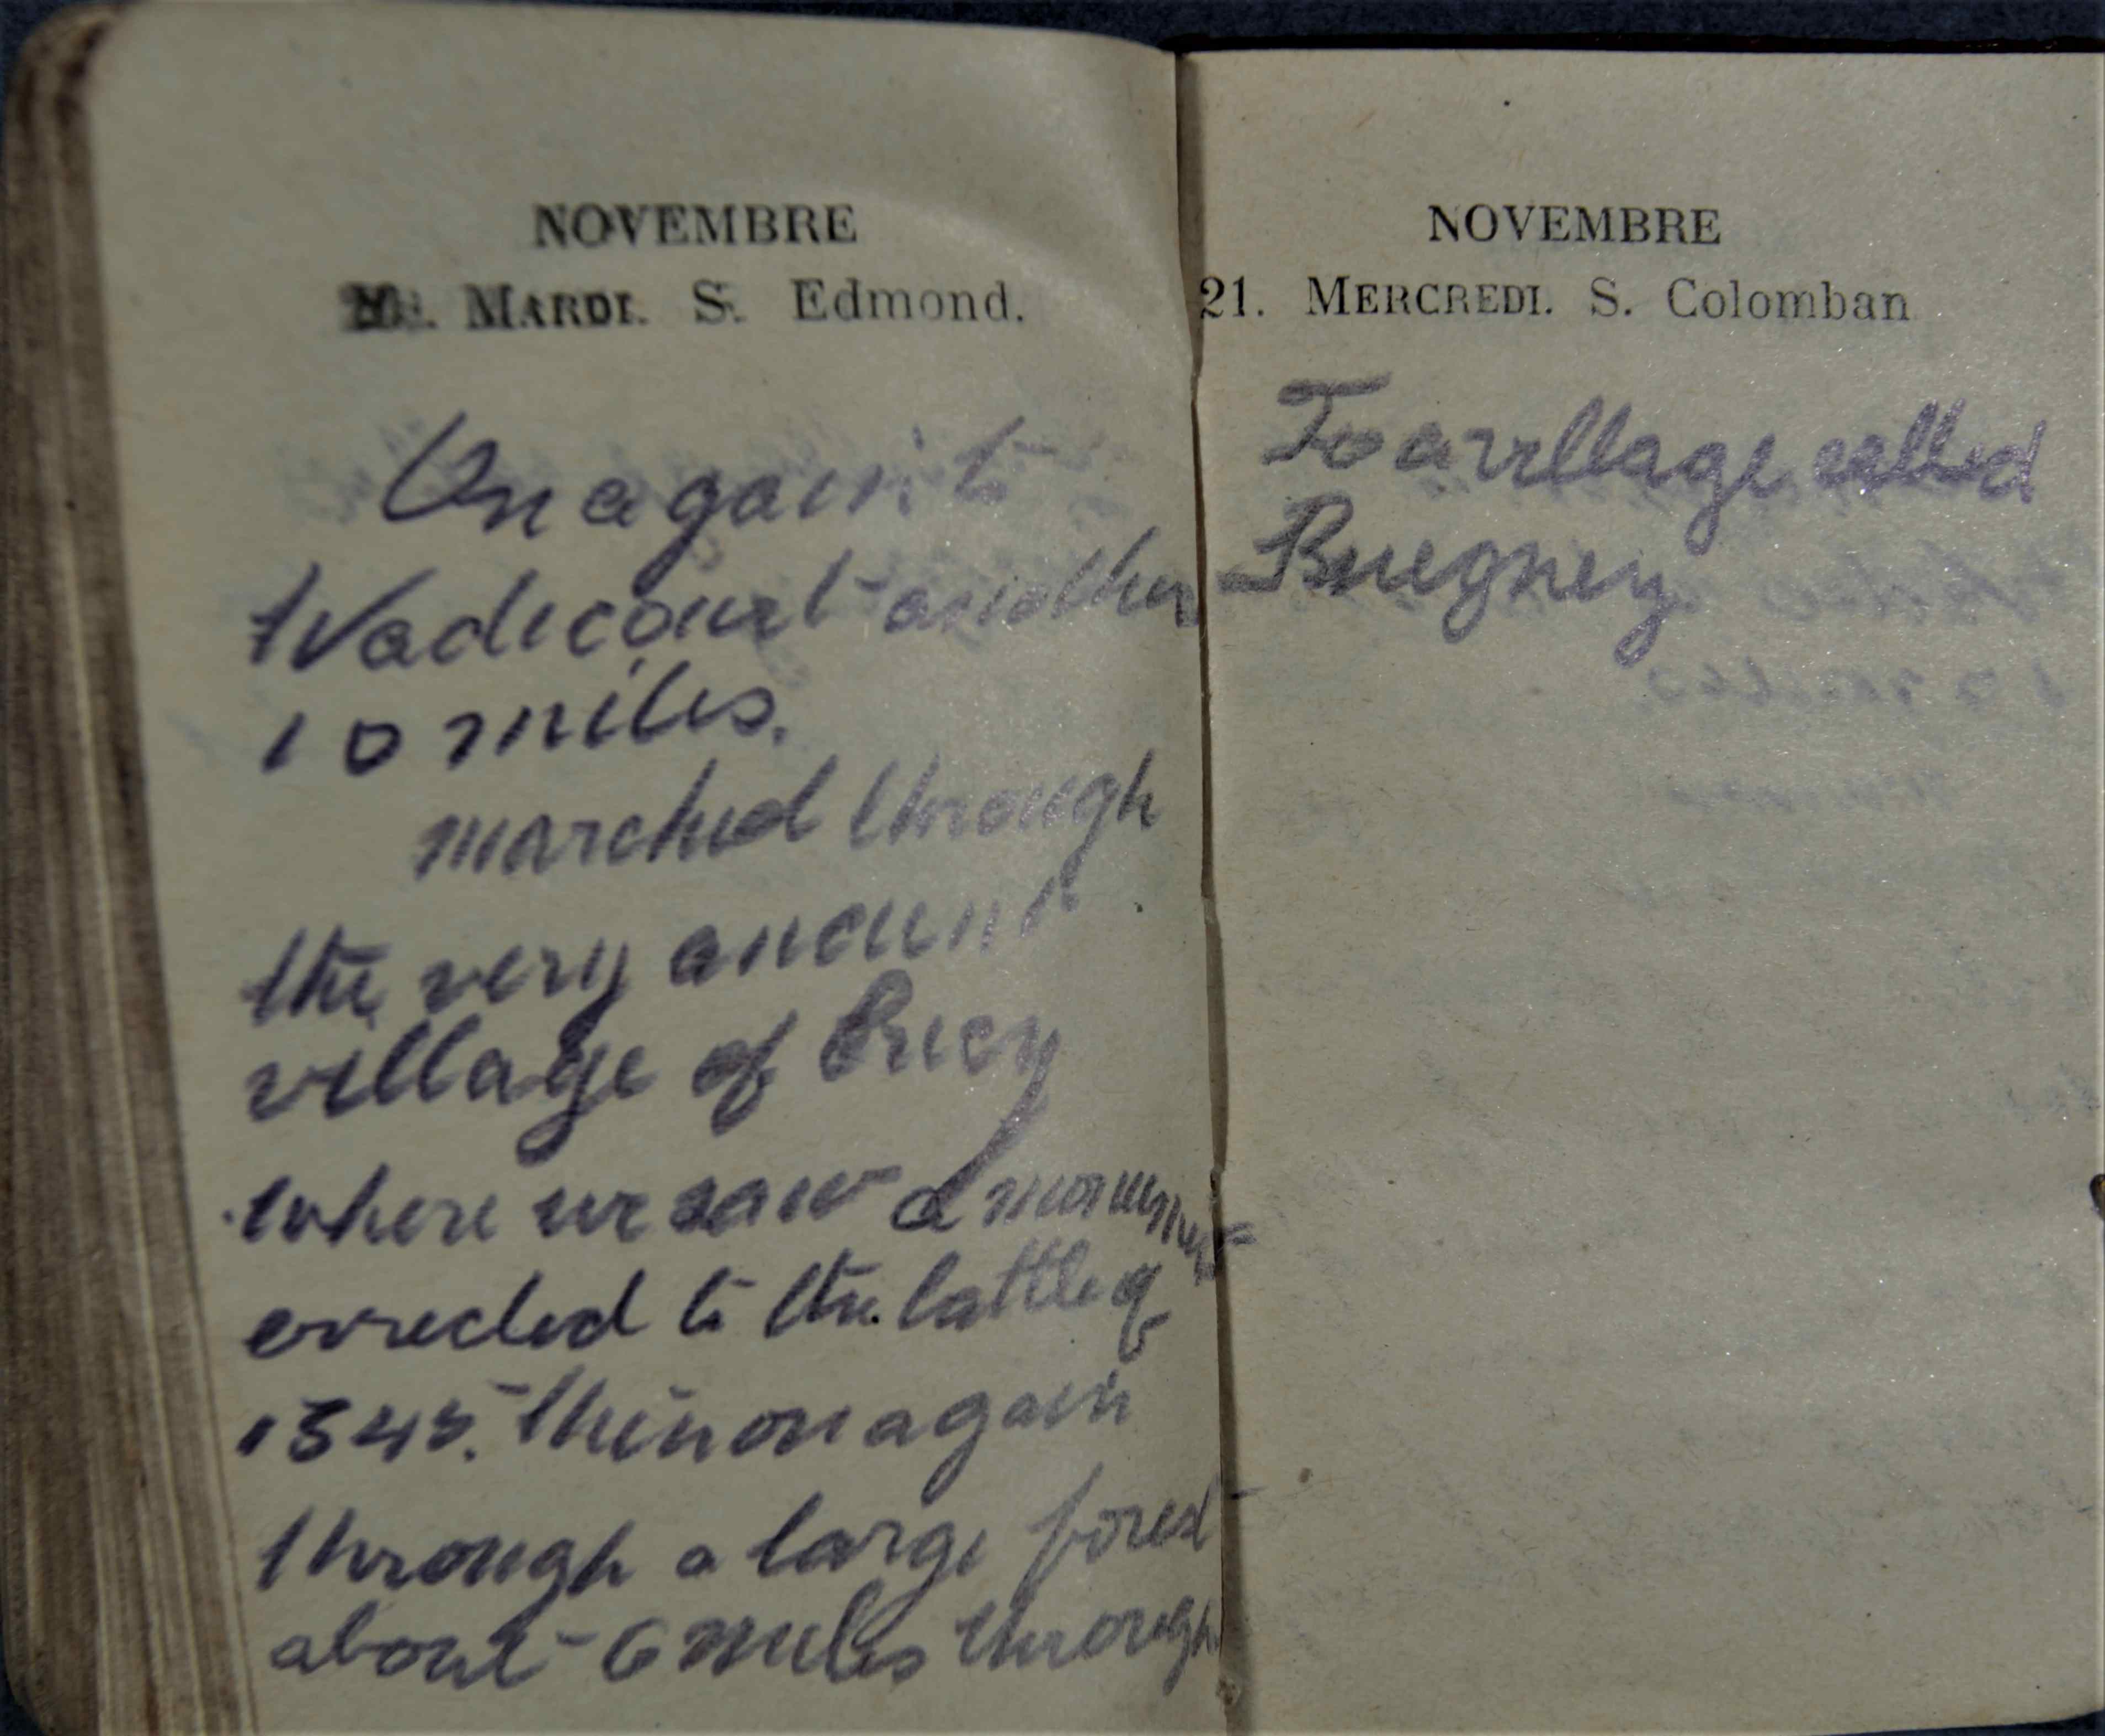 NOVEMBRE
20. MARDI. S. Edmond.
On again to
Wadicourt another
10 miles.
marched through
the very ancient
village of Cricy
where we saw a monument
errected to the battle of
1345. then on again
through a large forest
about 6 miles through
NOVEMBRE
21. MERCREDI. S. Colomban
To a village called
Buegney